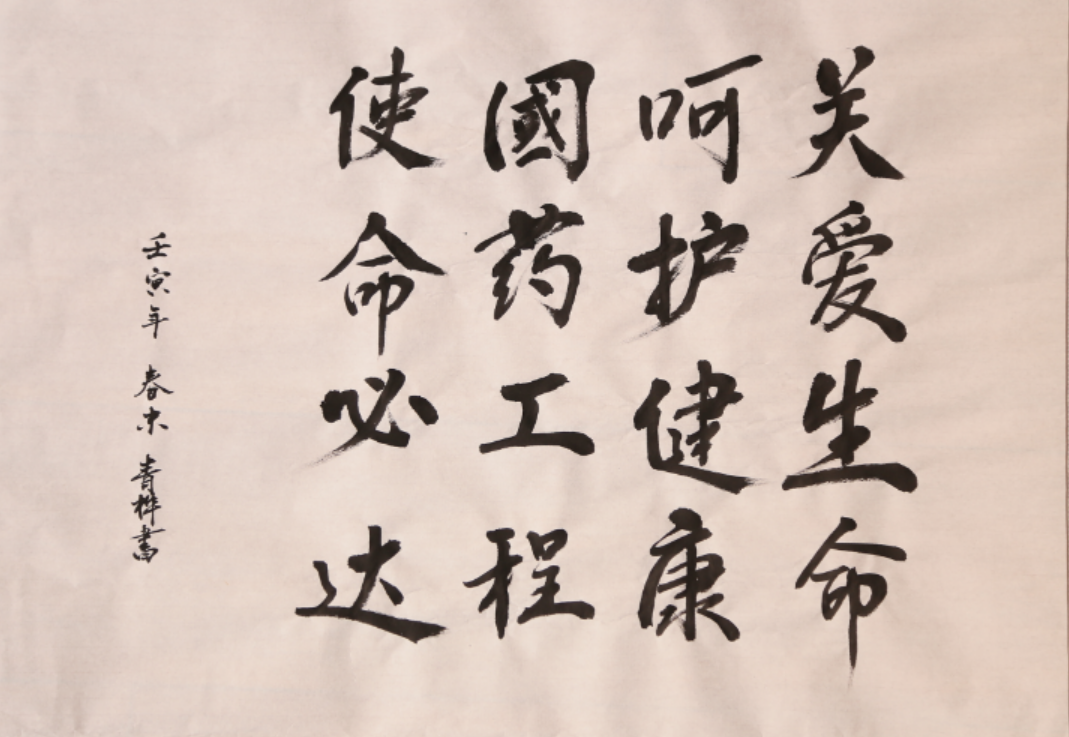 关爱生命
呵护健康
國药工程
使命必达
壬寅年 春末 青桦書